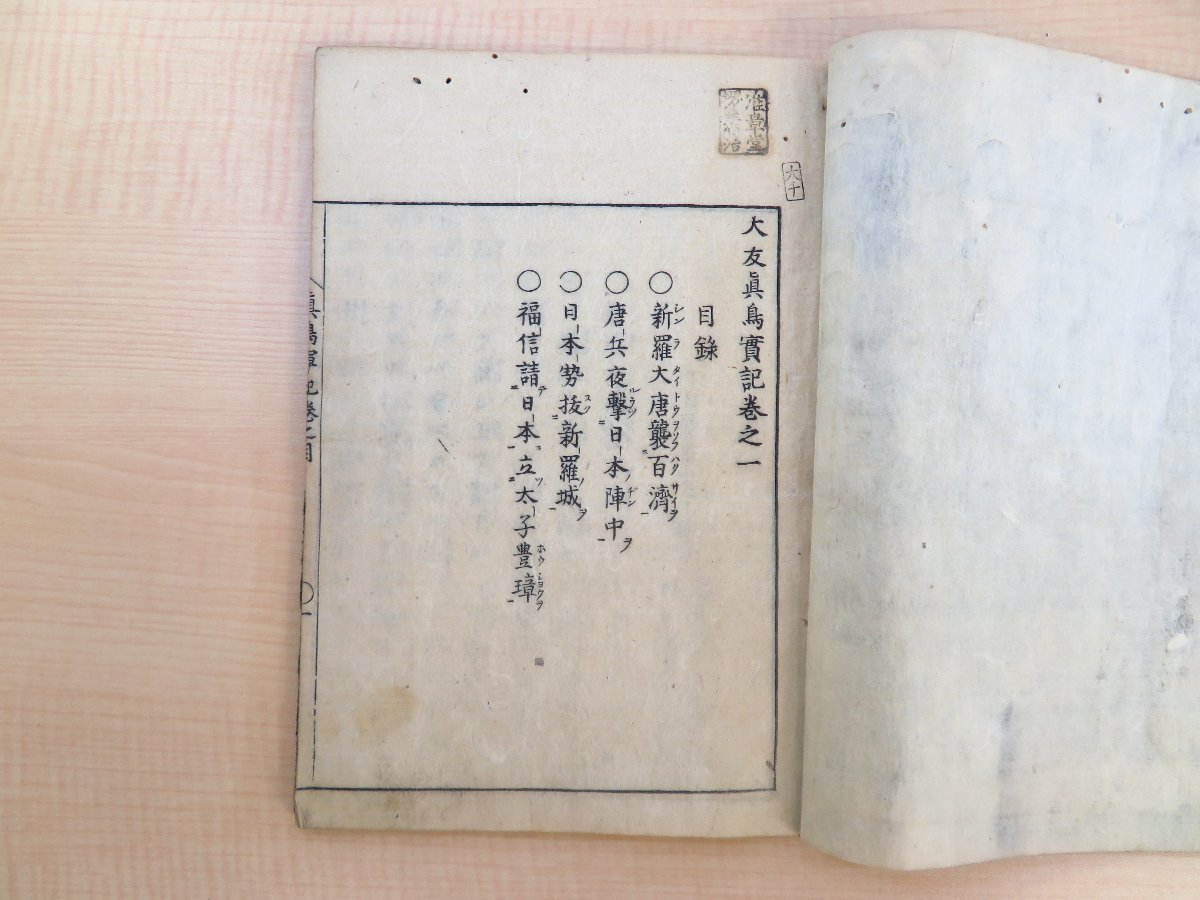 大友眞鳥實記卷之一
目錄
○新羅大唐襲百濟
○唐兵夜擊日本陣中
○日本勢拔新羅城
○福信請日本立太子豊璋
眞鳥軍記卷之一目